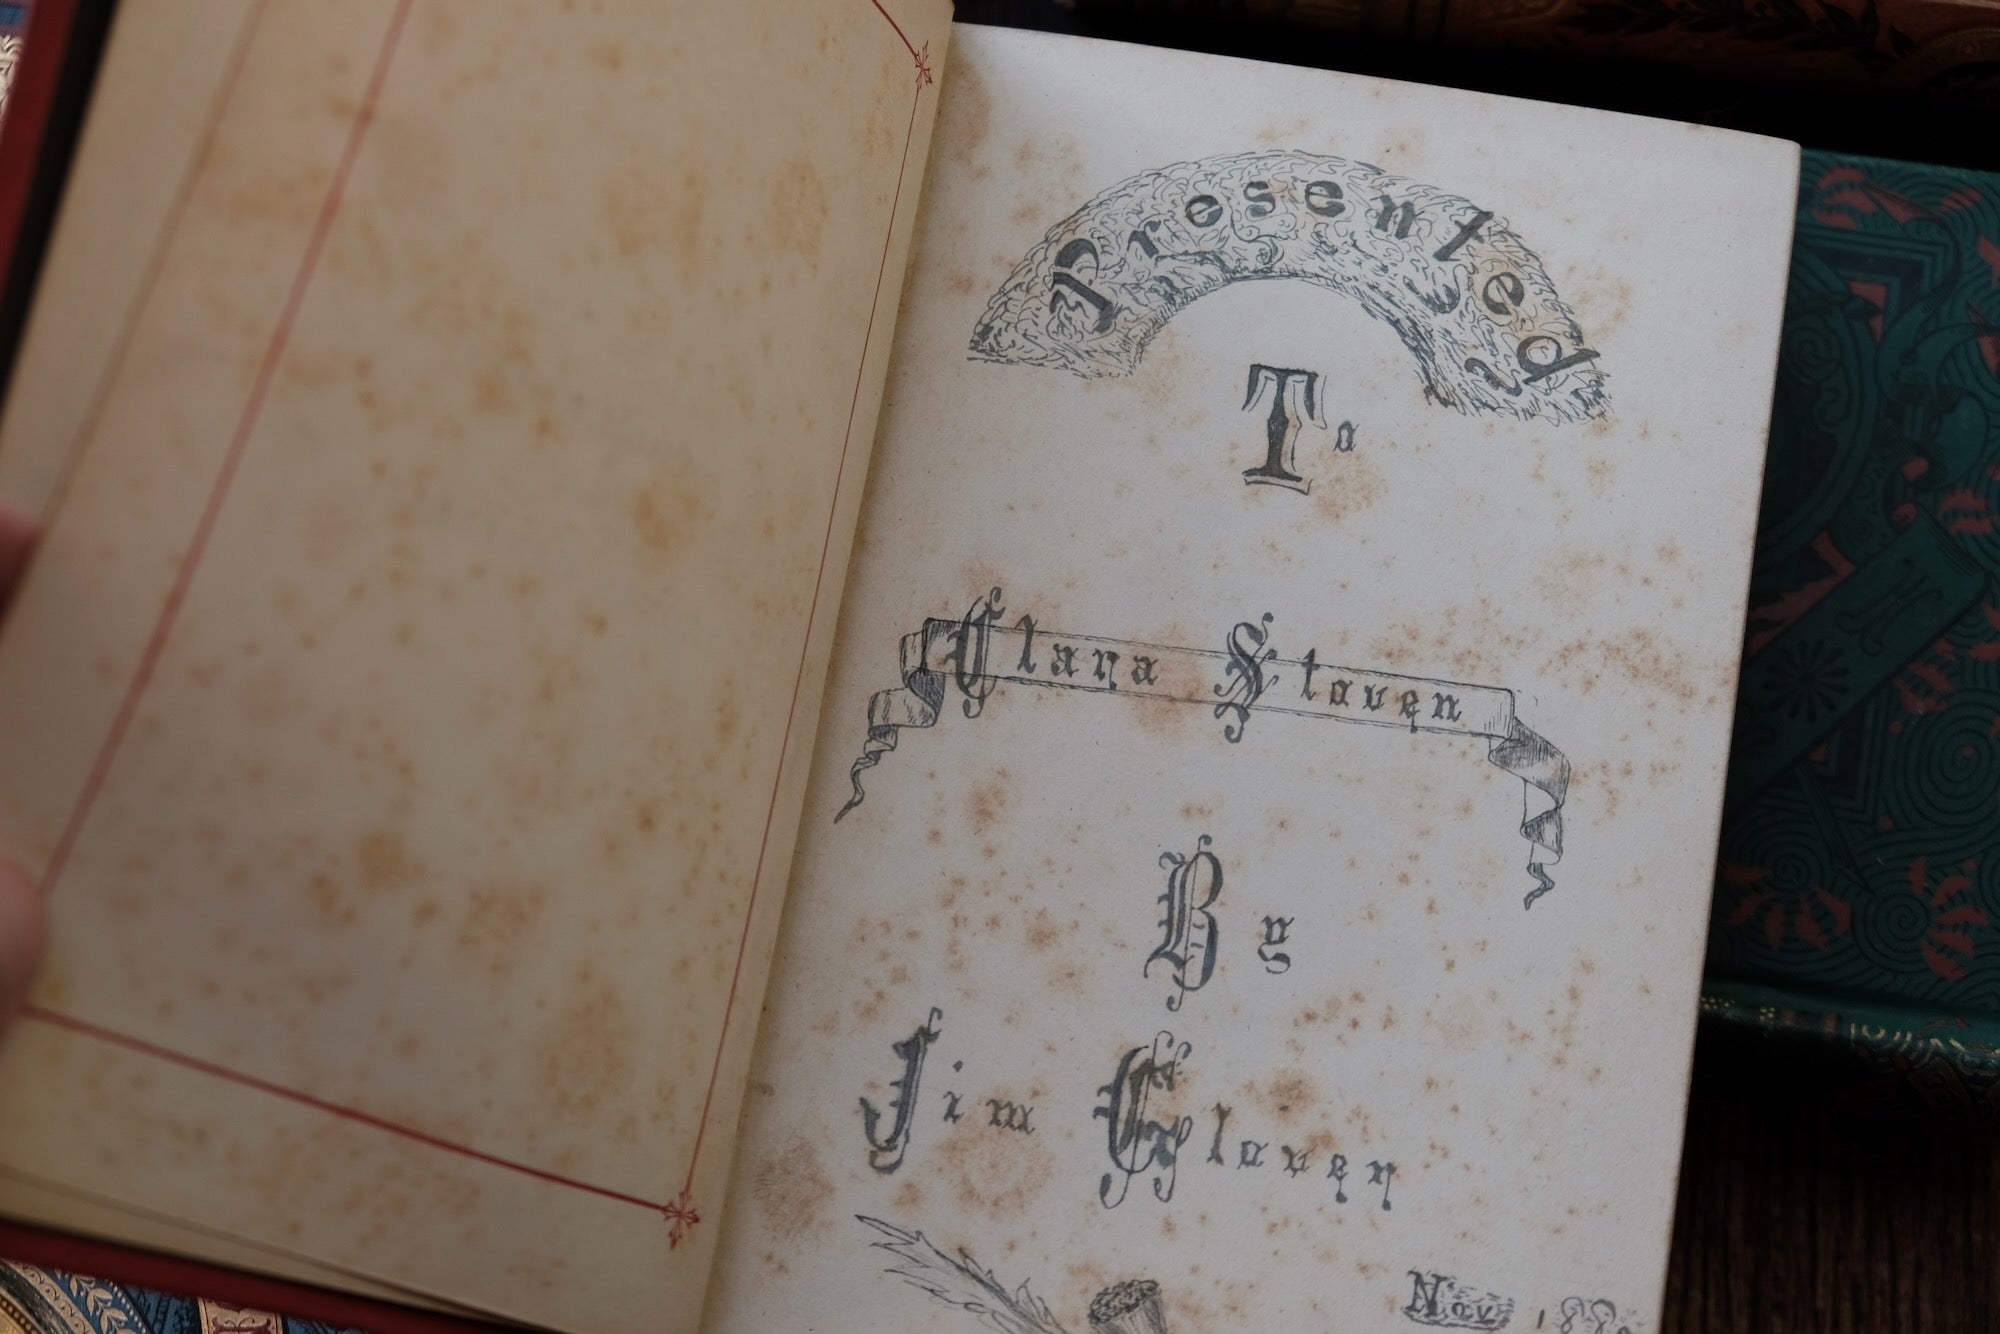 Presented
To
Clara Stoven
By
Jim Glover
Nov